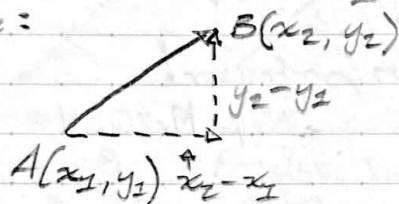 :
B(x₂, y₂)
y₂-y₁
A(x₁, y₁) x₂-x₁